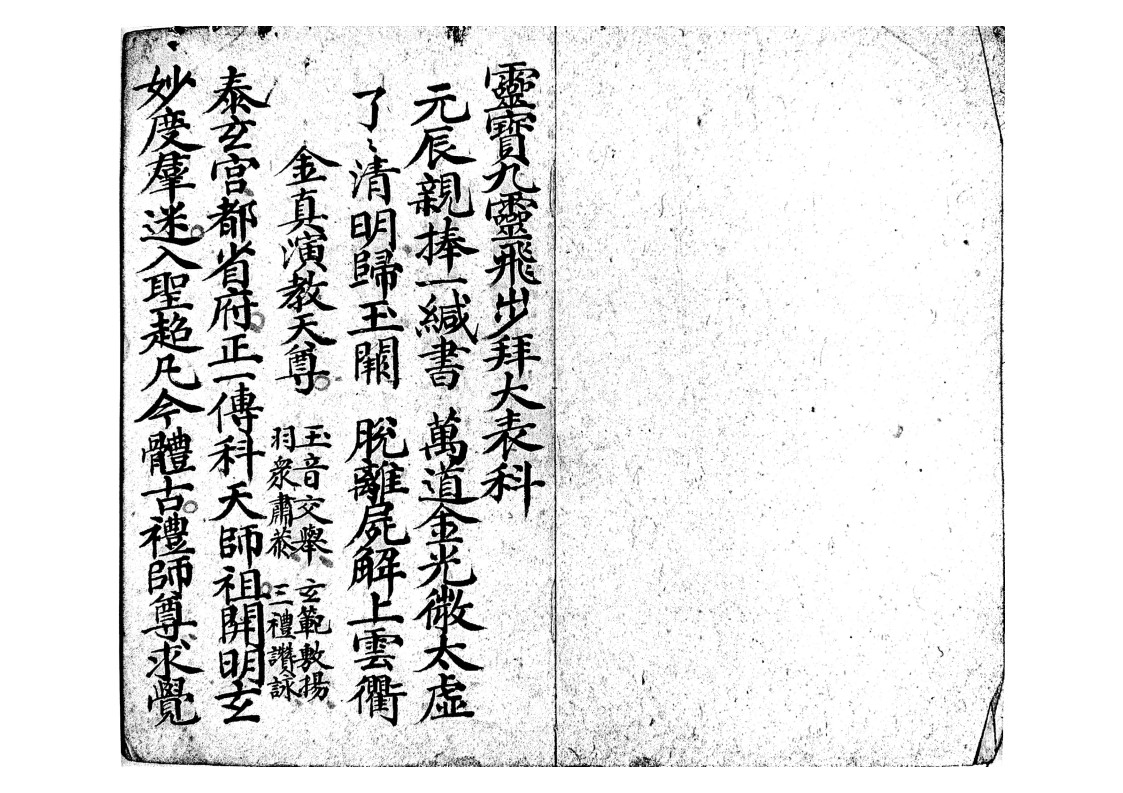 靈寶九靈飛步拜大表科
元辰親捧一緘書 萬道金光徹太虛
了〻清明歸玉闕 脫離屍解上雲衢
金真演教天尊
玉音交舉 玄範敷揚
羽衆肅恭 三禮讚詠
泰玄宮都省府正一傳科天師祖開明玄
妙度羣迷入聖超凡今體古禮師尊求覺